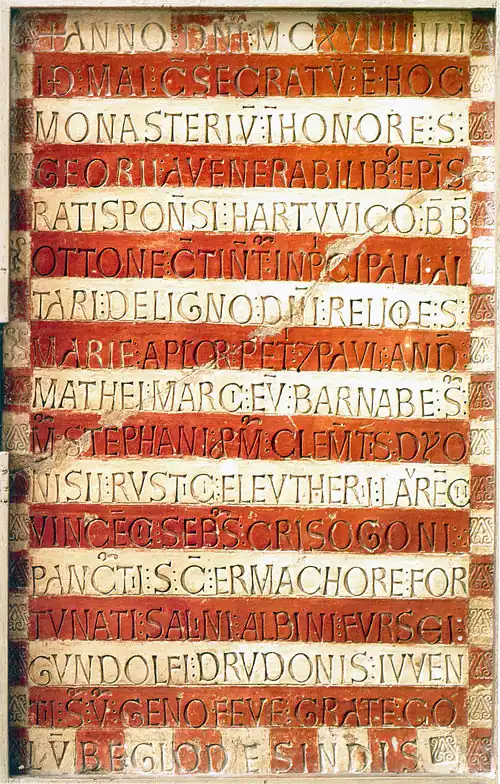 +ANNO : DN̄I : M C XVIIII : IIII
ID̄ : MAI : C̄SECRATV̄ : Ē HOC
MONASTERIV̄ : ĪHONORE : S :
GEORII : A VENERABILIB᾿ : EPĪS
RATISPOÑSI : HARTVVICO : B̄B̄
OTTONE : C̄TIN̄T : INP̄CIPALI : AL
TARI : DE LIGNO : DN̄I : RELIQ̄E : S
MARIE : APL̄OR : PET᾿ 7 PAVL : AND̄
MATHEI : MARCI : EV̄ : BARNABE : S̄
M̄ : STEPHANI : P̄M̄ : CLEM̄TS : DYO
NISII : RVSTICI : ELEVTHERII : LAVRĒCI
VINCĒCII : SEB̄S : CRISOGONI :
PANC̄TI : S C̄ : ERMACHORE : FOR
TVNATI : SALINI : ALBINI : FVRSEI :
GVNDOLFI : DRVDONIS : IVVEN
TI : S̄ : V̄ : GENOFEVE : GRATE : CO
LV̄BE : GLODESINDIS